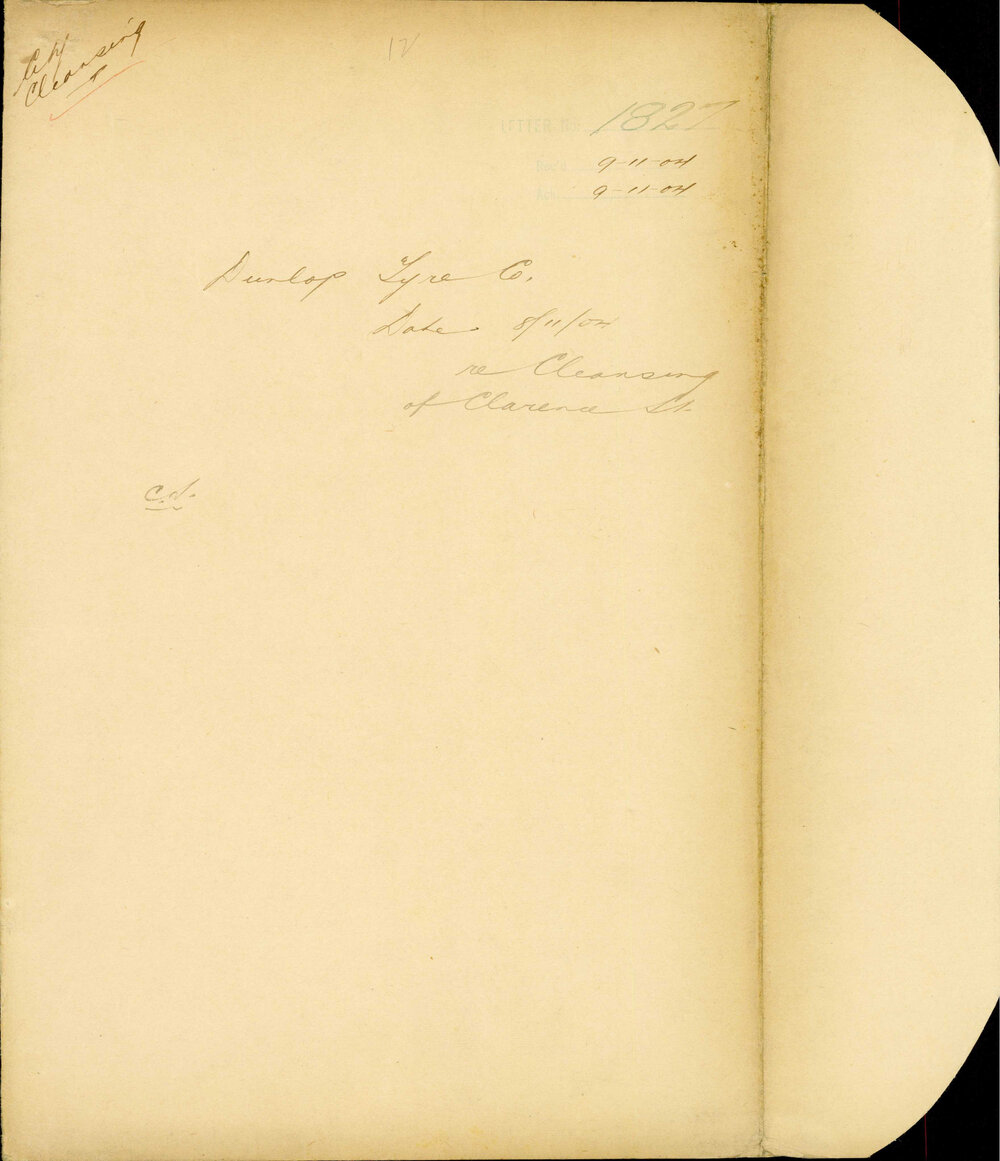 City
Cleansing
12
LETTER No. 1827
Rec'd 9-11-04
Ack. 9-11-04
Dunlop Tyre Co.
Date 8/11/04
re Cleansing
of Clarence St.